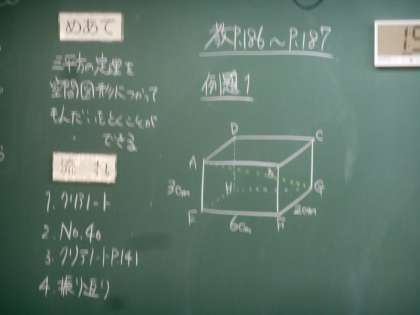 めあて
三平方の定理を
空間図形につかって
もんだいをとくことが
できる
流れ
1. クリアノート
2. No.40
3. クリアノートP.141
4. 振り返り
教P.186〜P.187
例題1
D
C
A
B
3cm
H
G
E
F
6cm
2cm
15